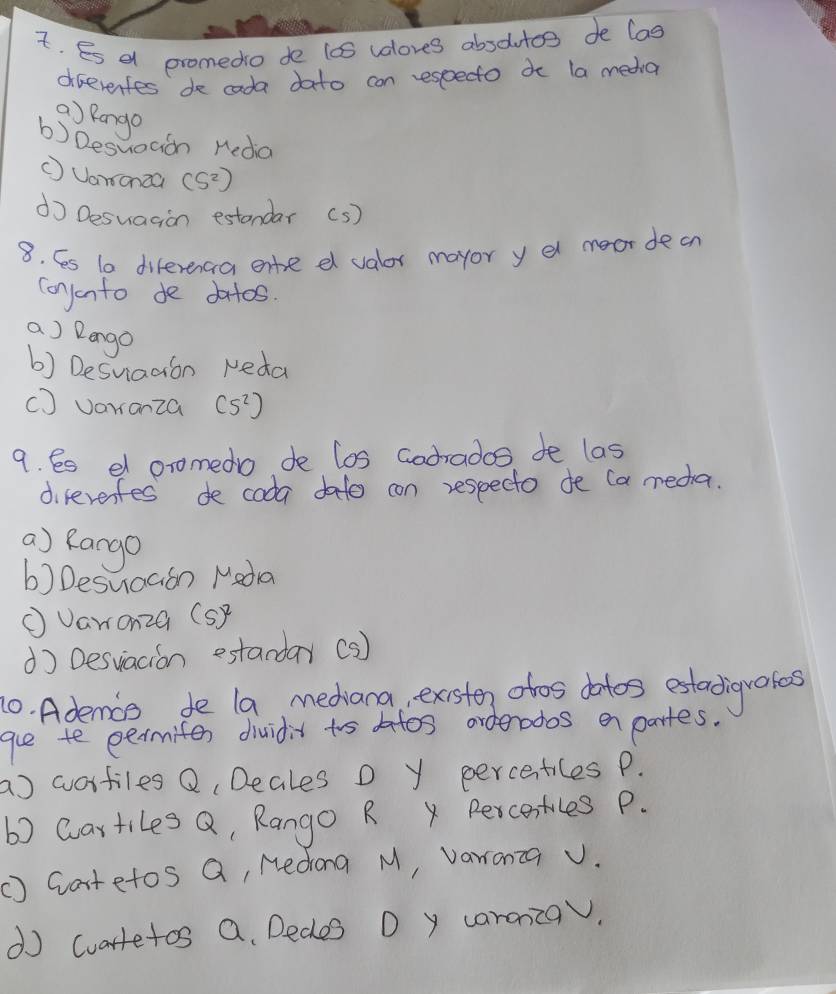 7. Es el promedio de los valores absolutos de las
diferentes de cada dato con respecto de la media
a) Rango
b) Desviación Media
c) Varianza (S²)
d) Desviación estandar (s)
8. Es la diferencia entre el valor mayor y el menor de un
conjunto de datos.
a) Rango
b) Desviación Media
c) Varianza (S²)
9. Es el promedio de los cadrados de las
diferentes de cada dato con respecto de la media.
a) Rango
b) Desviación Media
c) Varianza (S)²
d) Desviación estandar (s)
10. Ademas de la mediana, existen otros datos estadigrafos
que te permiten dividir tus datos ordenados en partes.
a) Cuartiles Q, Deciles D y percentiles P.
b) Cuartiles Q, Rango R y Percentiles P.
c) Cuartetos Q, Mediana M, Varianza V.
d) Cuartetos Q. Deciles D y varianza V.